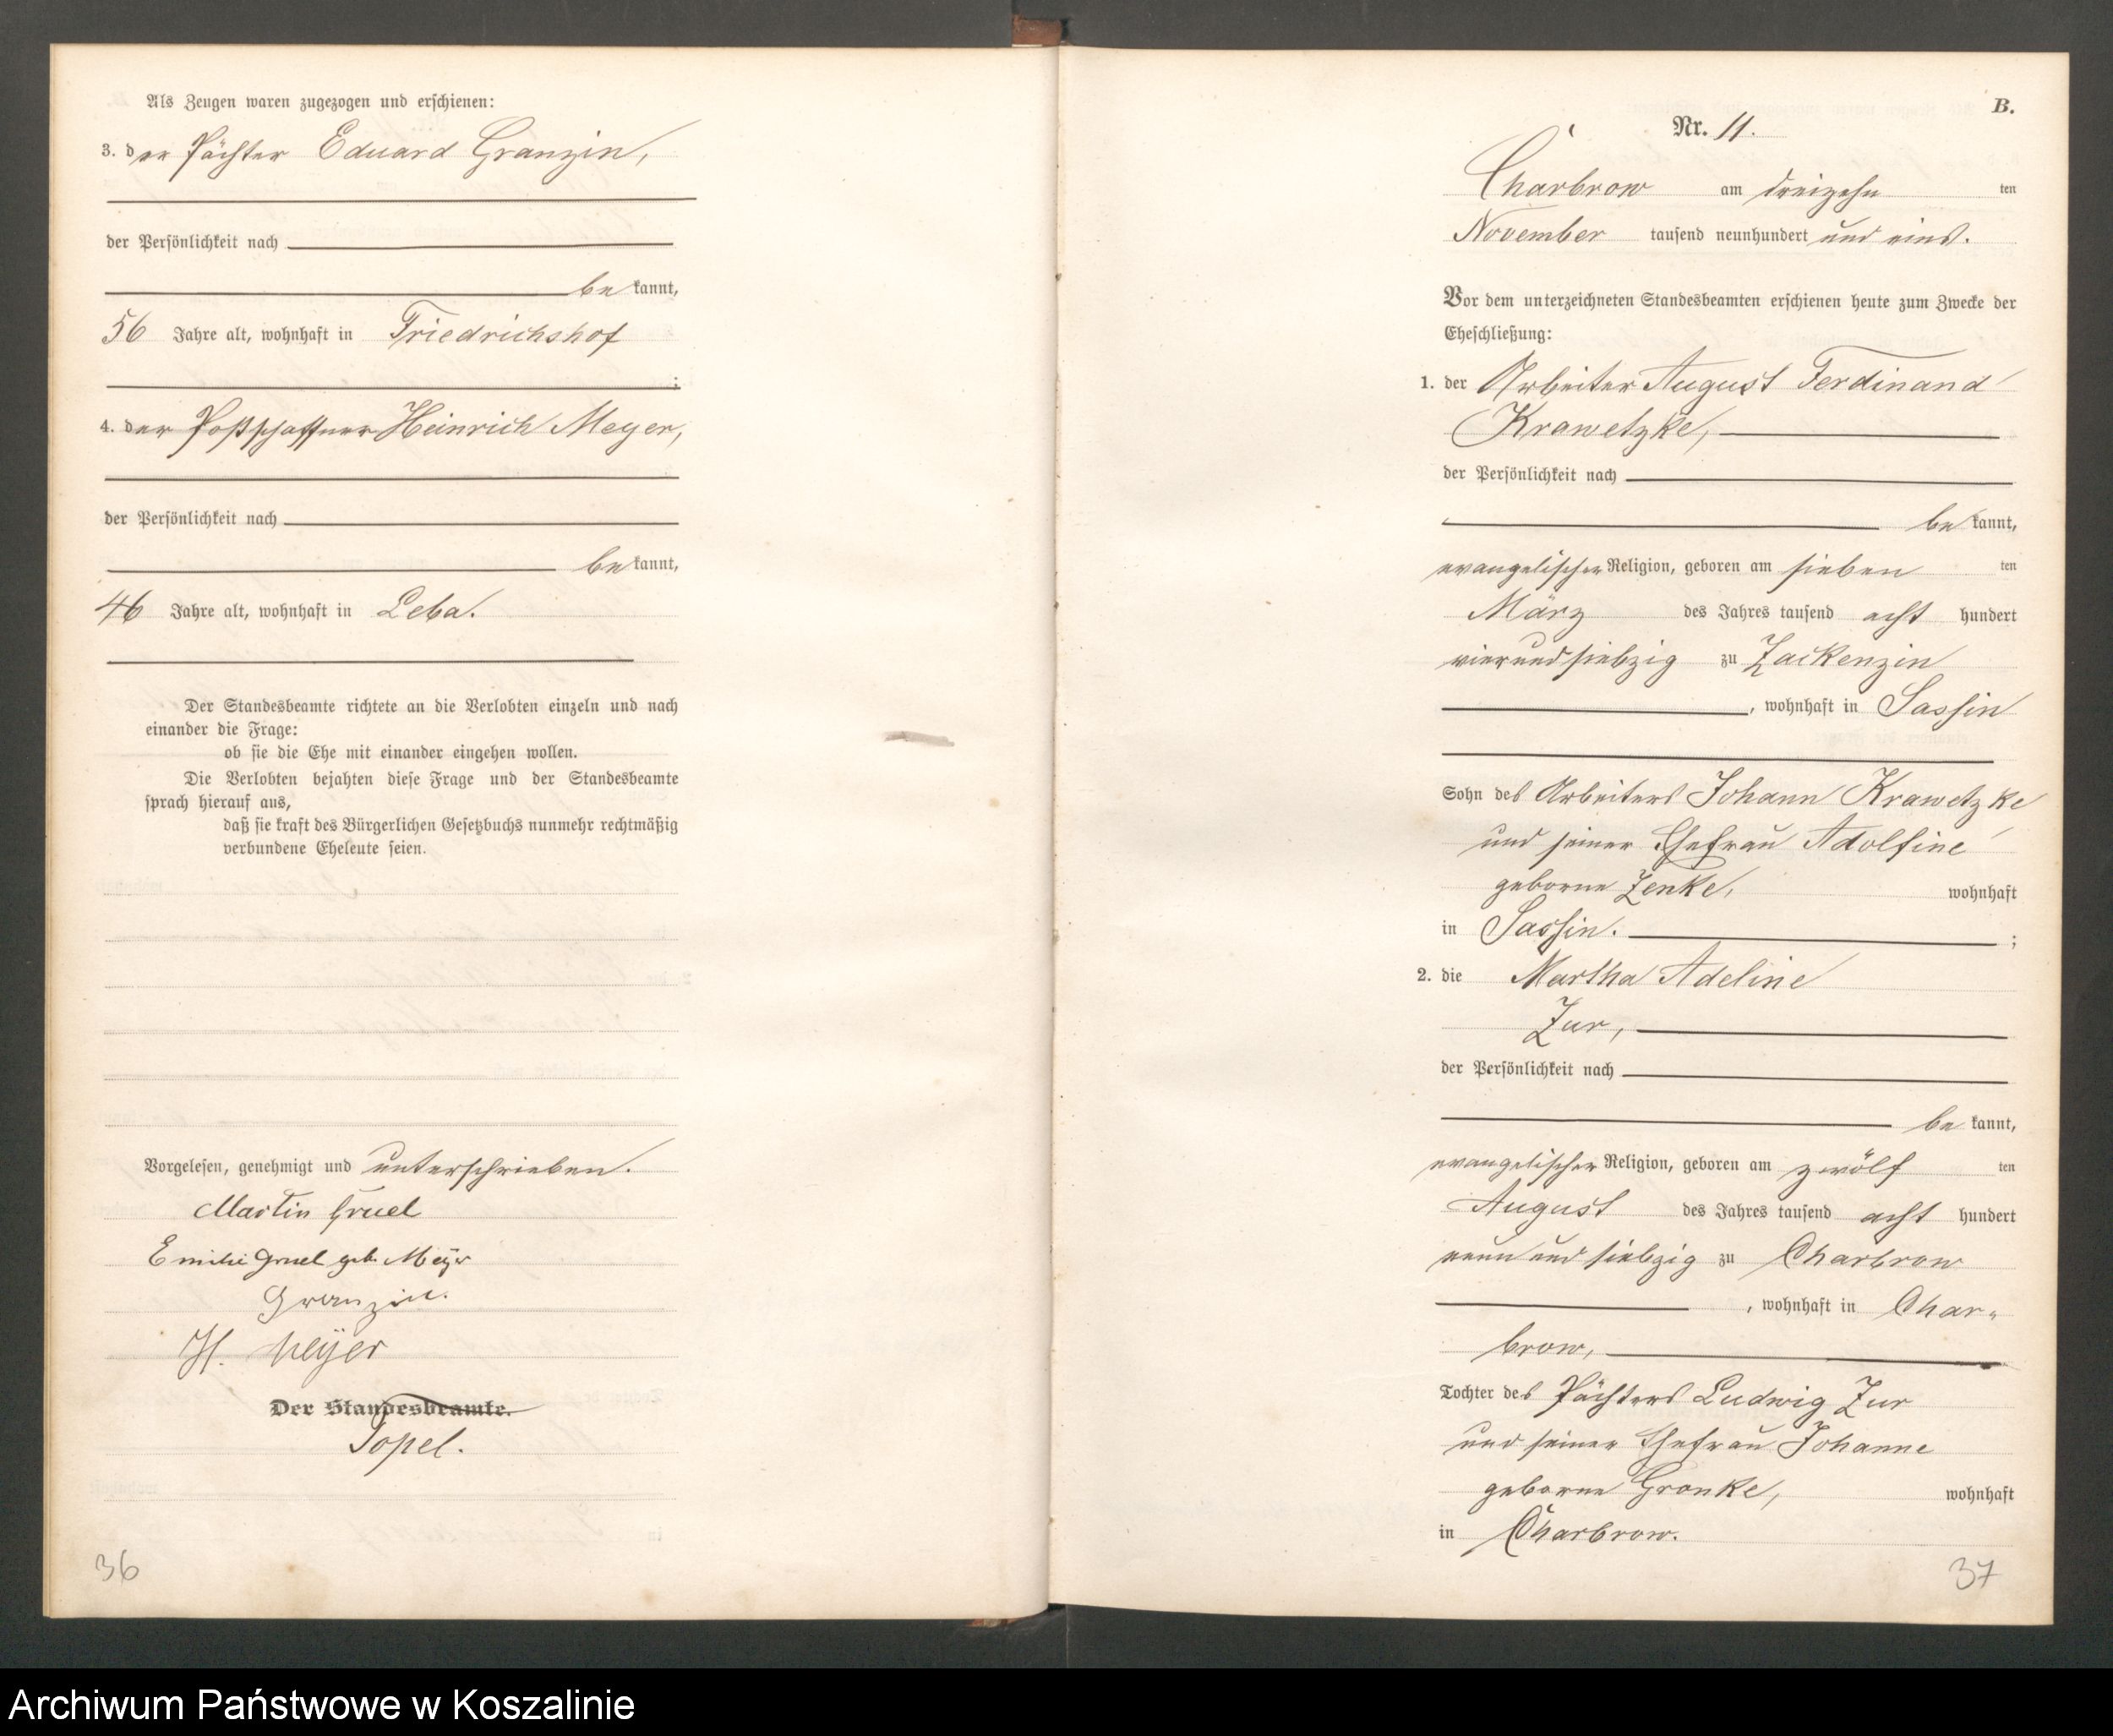 Als Zeugen waren zugezogen und erschienen:
3. der Pächter Eduard Granzin,
der Persönlichkeit nach
be kannt,
56 Jahre alt, wohnhaft in Friedrichshof
;
4. der Postschaffner Heinrich Meyer,
der Persönlichkeit nach
be kannt,
46 Jahre alt, wohnhaft in Leba.
Der Standesbeamte richtete an die Verlobten einzeln und nach
einander die Frage:
ob sie die Ehe mit einander eingehen wollen.
Die Verlobten bejahten diese Frage und der Standesbeamte
sprach hierauf aus,
daß sie kraft des Bürgerlichen Gesetzbuchs nunmehr rechtmäßig
verbundene Eheleute seien.
Vorgelesen, genehmigt und unterschrieben.
Martin Gruel
Emilie Gruel geb. Meyer
Granzin.
H. Meyer
Der Standesbeamte.
Topel.
36
B.
Nr. 11.
Charbrow am dreizehn ten
November tausend neunhundert und eins.
Vor dem unterzeichneten Standesbeamten erschienen heute zum Zwecke der
Eheschließung:
1. der Arbeiter August Ferdinand
Krawetzke,
der Persönlichkeit nach
be kannt,
evangelischer Religion, geboren am sieben ten
März des Jahres tausend acht hundert
vierundsiebzig zu Zackenzin
, wohnhaft in Sassin
Sohn des Arbeiters Johann Krawetzke
und seiner Ehefrau Adolfine
geborne Zenke, wohnhaft
in Sassin. ;
2. die Martha Adeline
Zur,
der Persönlichkeit nach
be kannt,
evangelischer Religion, geboren am zwölf ten
August des Jahres tausend acht hundert
neun und siebzig zu Charbrow
, wohnhaft in Char-
brow,
Tochter des Pächters Ludwig Zur
und seiner Ehefrau Johanne
geborne Gronke, wohnhaft
in Charbrow.
37
Archiwum Państwowe w Koszalinie